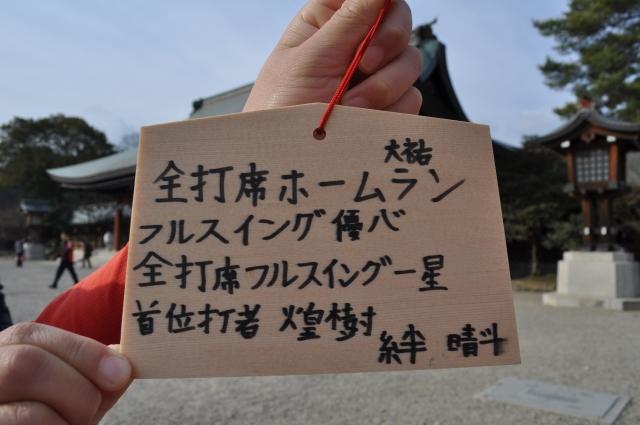 大祐
全打席ホームラン
フルスイング優心
全打席フルスイング一星
首位打者 煌樹
絆 晴斗